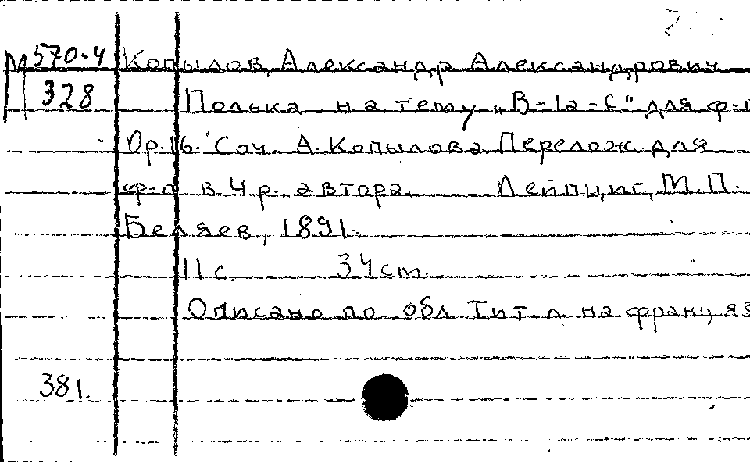 М 570-4 Копылов, Александр Александрович
328 Полька на тему „B-la-f" для ф-п
Op.16. Соч. А. Копылова Перелож для
ф-п в 4 р. автора. Лейпциг, М.П.
Беляев, 1891.
11 с. 34 cm
Описано по обл Тит л на франц яз
381.